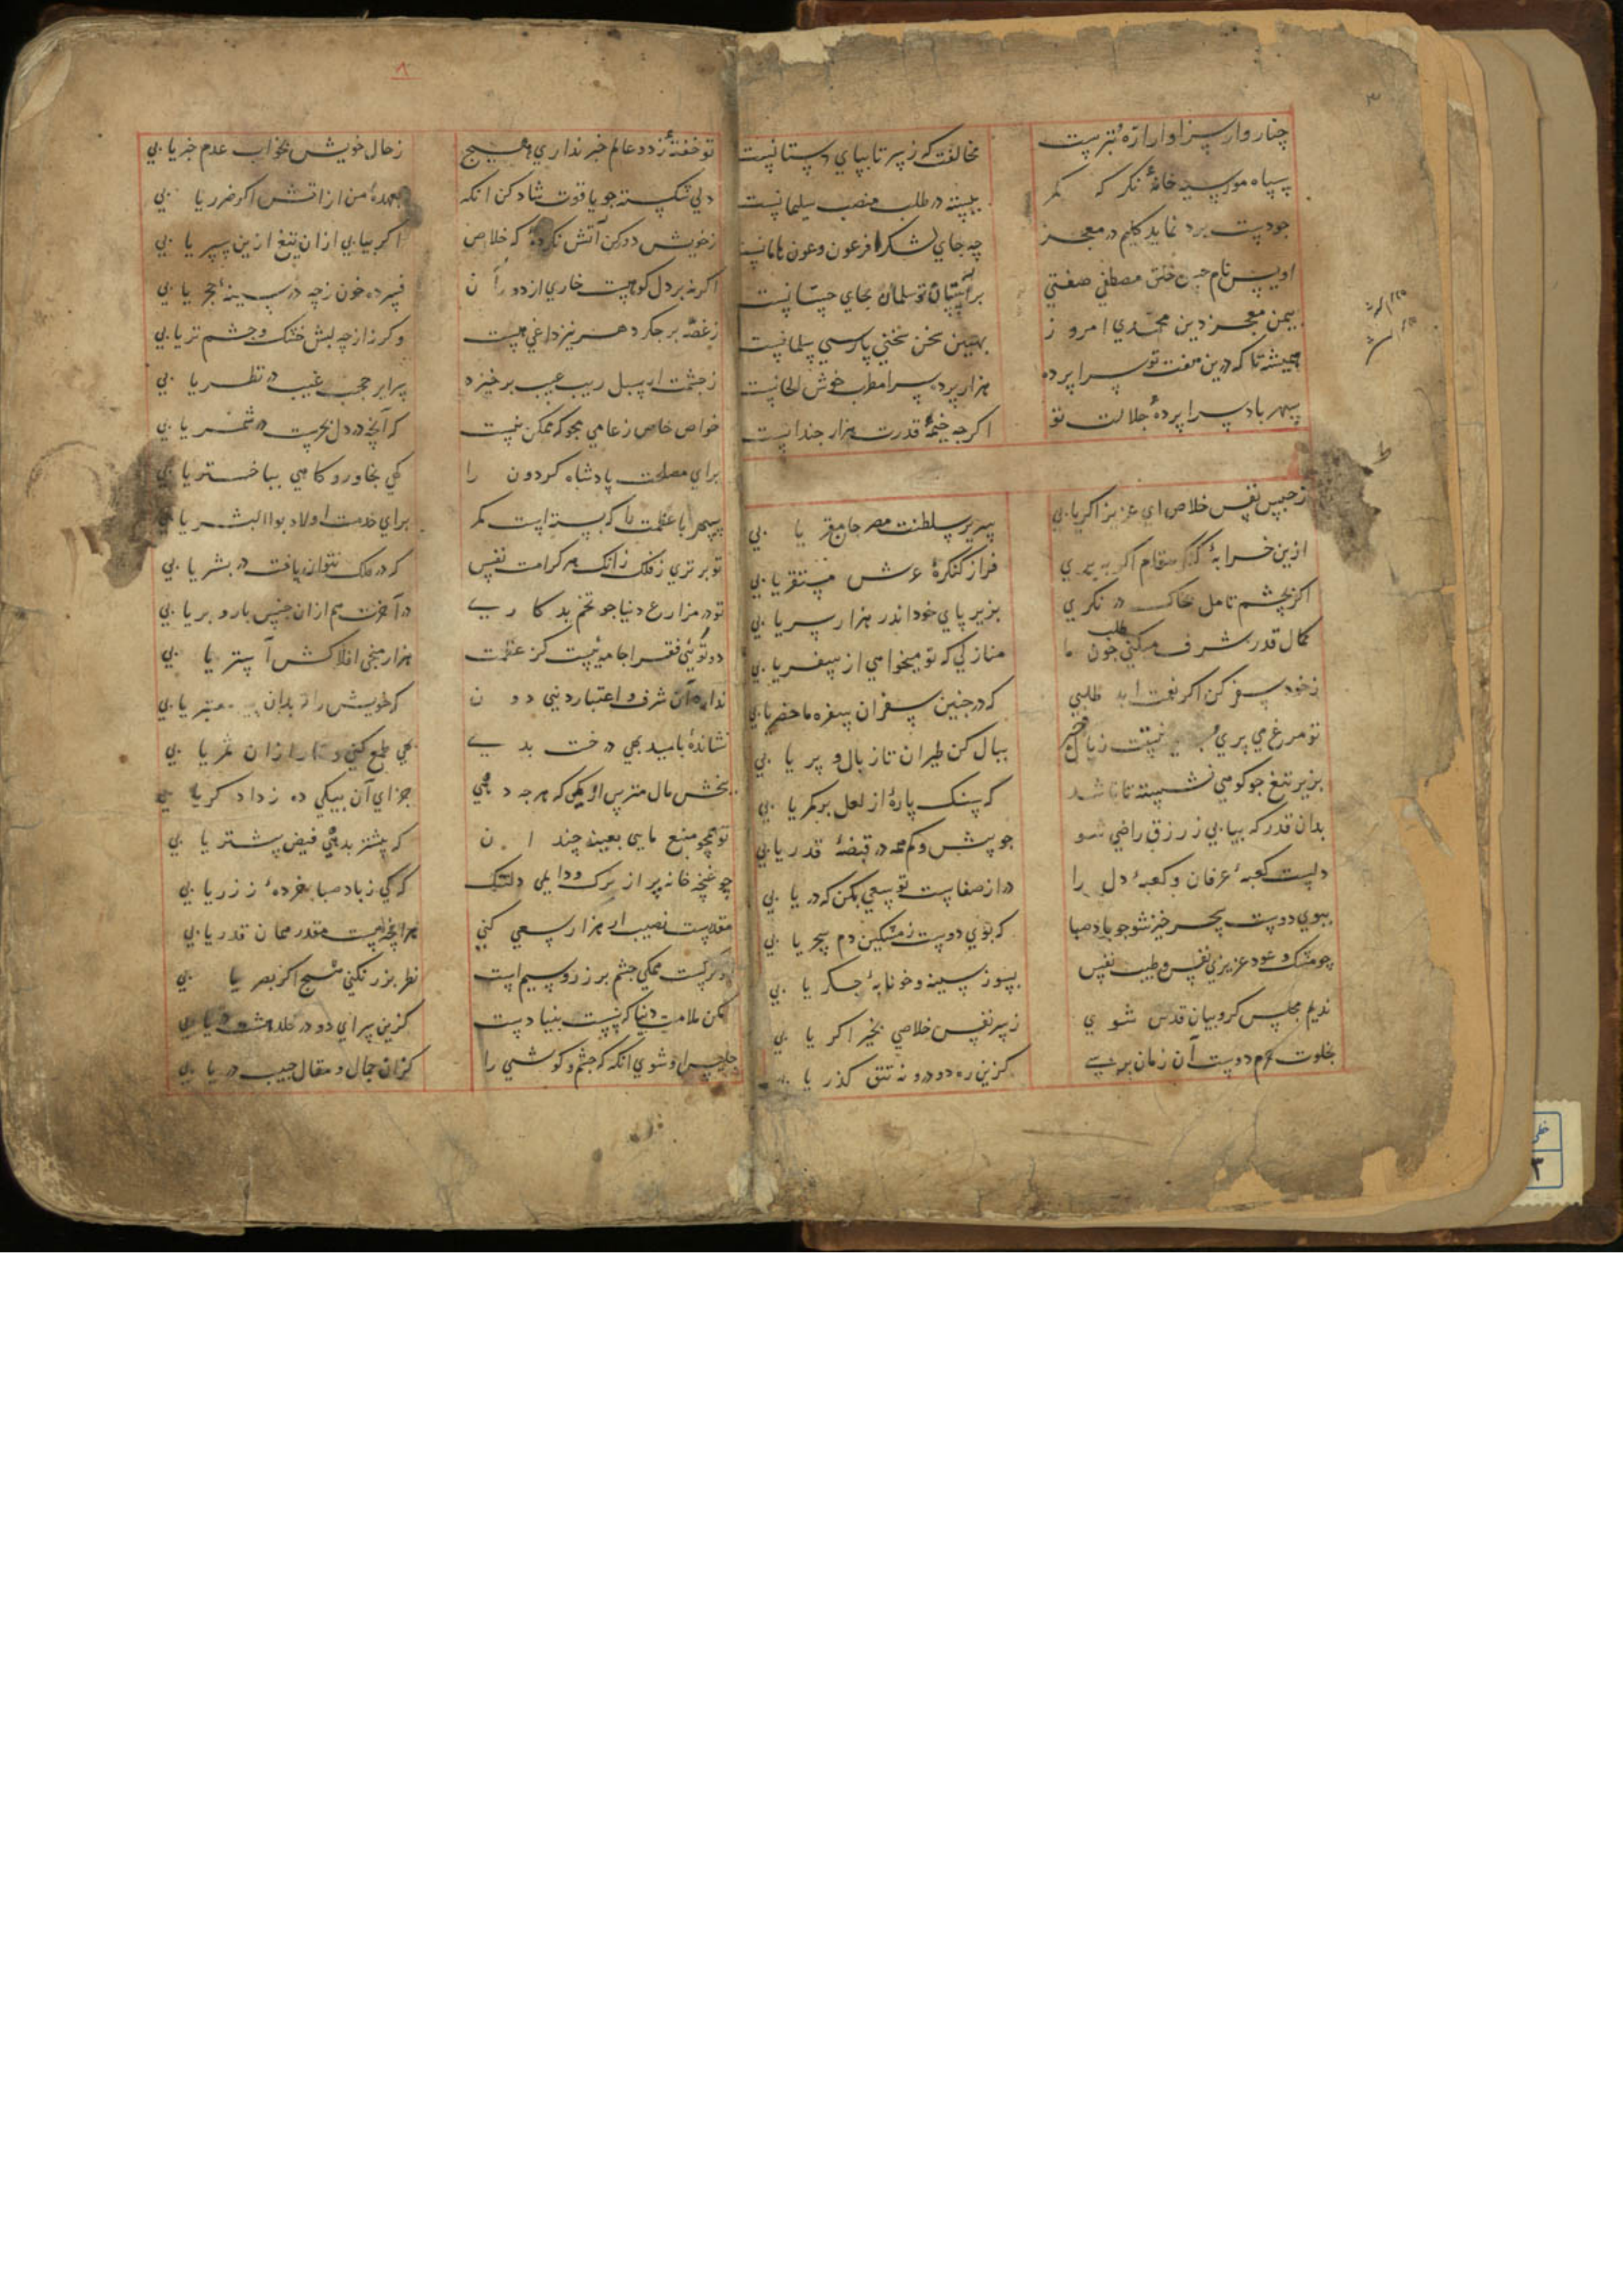 ۳
چنار وار سزاوار ازهٔ تبرست مخالفت که ز سر تا بپای دستانیست
سیاه مور سیه خانهٔ نگر که کمر ببسته در طلب منصب سلیمانیست
چو دست برد نماید کلیم در معجز چه جای لشکر فرعون و عون هامانیست
اویس نام حسن خلق مصطفی صفتی بر آستان تو سلمان بجای حسانیست
بیمن معجز دین محمدی امروز بهین سخن سخنی پارسی سلمانیست
همیشه تا که درین هفت تو سراپرده هزار پرده سرا مطرب خوش الحانیست
سپهر باد سراپردهٔ جلالت تو اگرچه خیمهٔ قدرت هزار چندانیست
ط
ز حبس نفس خلاص ای عزیز اگر یابی سریر سلطنت مصر جامع یابی
ازین خرابهٔ گذر مقام اگر ببری فراز کنگرهٔ عرش مستقر یابی
اگر بچشم تامل بخاک در نگری بزیر پای خود اندر هزار سر یابی
کمال قدر شرف میکنی طلب چون ما منازلی که تو میخواهی از سفر یابی
ز خود سفر کن اگر نعمت ابد طلبی که در چنین سفر آن سفره ماحضر یابی
تو مرغ می پری ببال کن طیران تا ز بال و پر یابی
بزیر تیغ چو کوهی نشسته تا باشد که سنک پارهٔ از لعل بر کمر یابی
بدان قدر که بیابی ز رزق راضی شو چو بیش و کم همه در قبضهٔ قدر یابی
دلست کعبهٔ عرفان و کعبهٔ دل را در از صفاست تو سعی بکن که در یابی
ببوی دوست سحر خیز شو چو باد صبا که بوی دوست ز مشکین دم سحر یابی
چو مشک و عود عزیزی نفس و طیب نفس بسوز سینه و خونابهٔ جگر یابی
ندیم مجلس کروبیان قدس شوی ز سر نفس خلاصی بخیر اگر یابی
بخلوت حرم دوست آن زمان برسی کزین ره دو در و نه تتق گذر یابی
۸
تو خفتهٔ ز دو عالم خبر نداری هیچ ز حال خویش بخواب عدم خبر یابی
دلی شکسته چو یاقوت شاد کن انکه بعهدهٔ من از آتش اگر ضرر یابی
ز خویش دو کن آتش نکردهٔ که خلاص اگر بیابی از ان تیغ ازین سپر یابی
اگر نه بر دل کوهست خاری از دوران فسرده خون ز چه در سینهٔ حجر یابی
ز غصه بر جگر دهر نیز داغی هست وگر نه از چه لبش خشک و چشم تر یابی
ز چشمت ار سبل ریب عیب برخیزد سرایر حجب غیب در نظر یابی
خواص خاص ز عامی مجو که ممکن نیست که آنچه در دل بحرست در شمر یابی
برای مصلحت پادشاه گردون را کهی بخاور و گاهی بباختر یابی
سپهر با عظمت تا که بسته است کمر برای خدمت اولاد بوالبشر یابی
تو برتری ز فلک زانکه هر کرامت نفس که در فلک نتوان یافت در بشر یابی
تو در مزارع دنیا چو تخم بد کاری در آخرت هم ازان جنس بار و بر یابی
دو توئی فقرا جامه ئیست کز عظمت هزار میخی افلاکش آستر یابی
ندارد آن شرف و اعتبار دنیی دون که خویش را تو بدان معتبر یابی
نشاندهٔ بامید بهی درخت بدی بهی طمع کنی و نار از ان ثمر یابی
ببخش مال مترس از کمی که هر چه دهی جزای آن بیکی ده ز دادگر یابی
تو همچو منبع مایی بعینه چند ان که بیشتر بدهی فیض بیشتر یابی
چو غنچه خانه پر از برک و دایمی دلتنک که کی ز باد صبا بغرده ٔ ز زر یابی
مقدرست نصیب ار هزار سعی کنی هر انچه هست مقدر همان قدر یابی
نظر بزر نکنی هیچ اگر بصر یابی
مکن ملامت دنیا که نیست بنیادست کزین سرای دو در خلد هشت در یابی
چرا چو شوی انکه که چشم و گوشی را کزان جمال و مقال حبیب در یابی